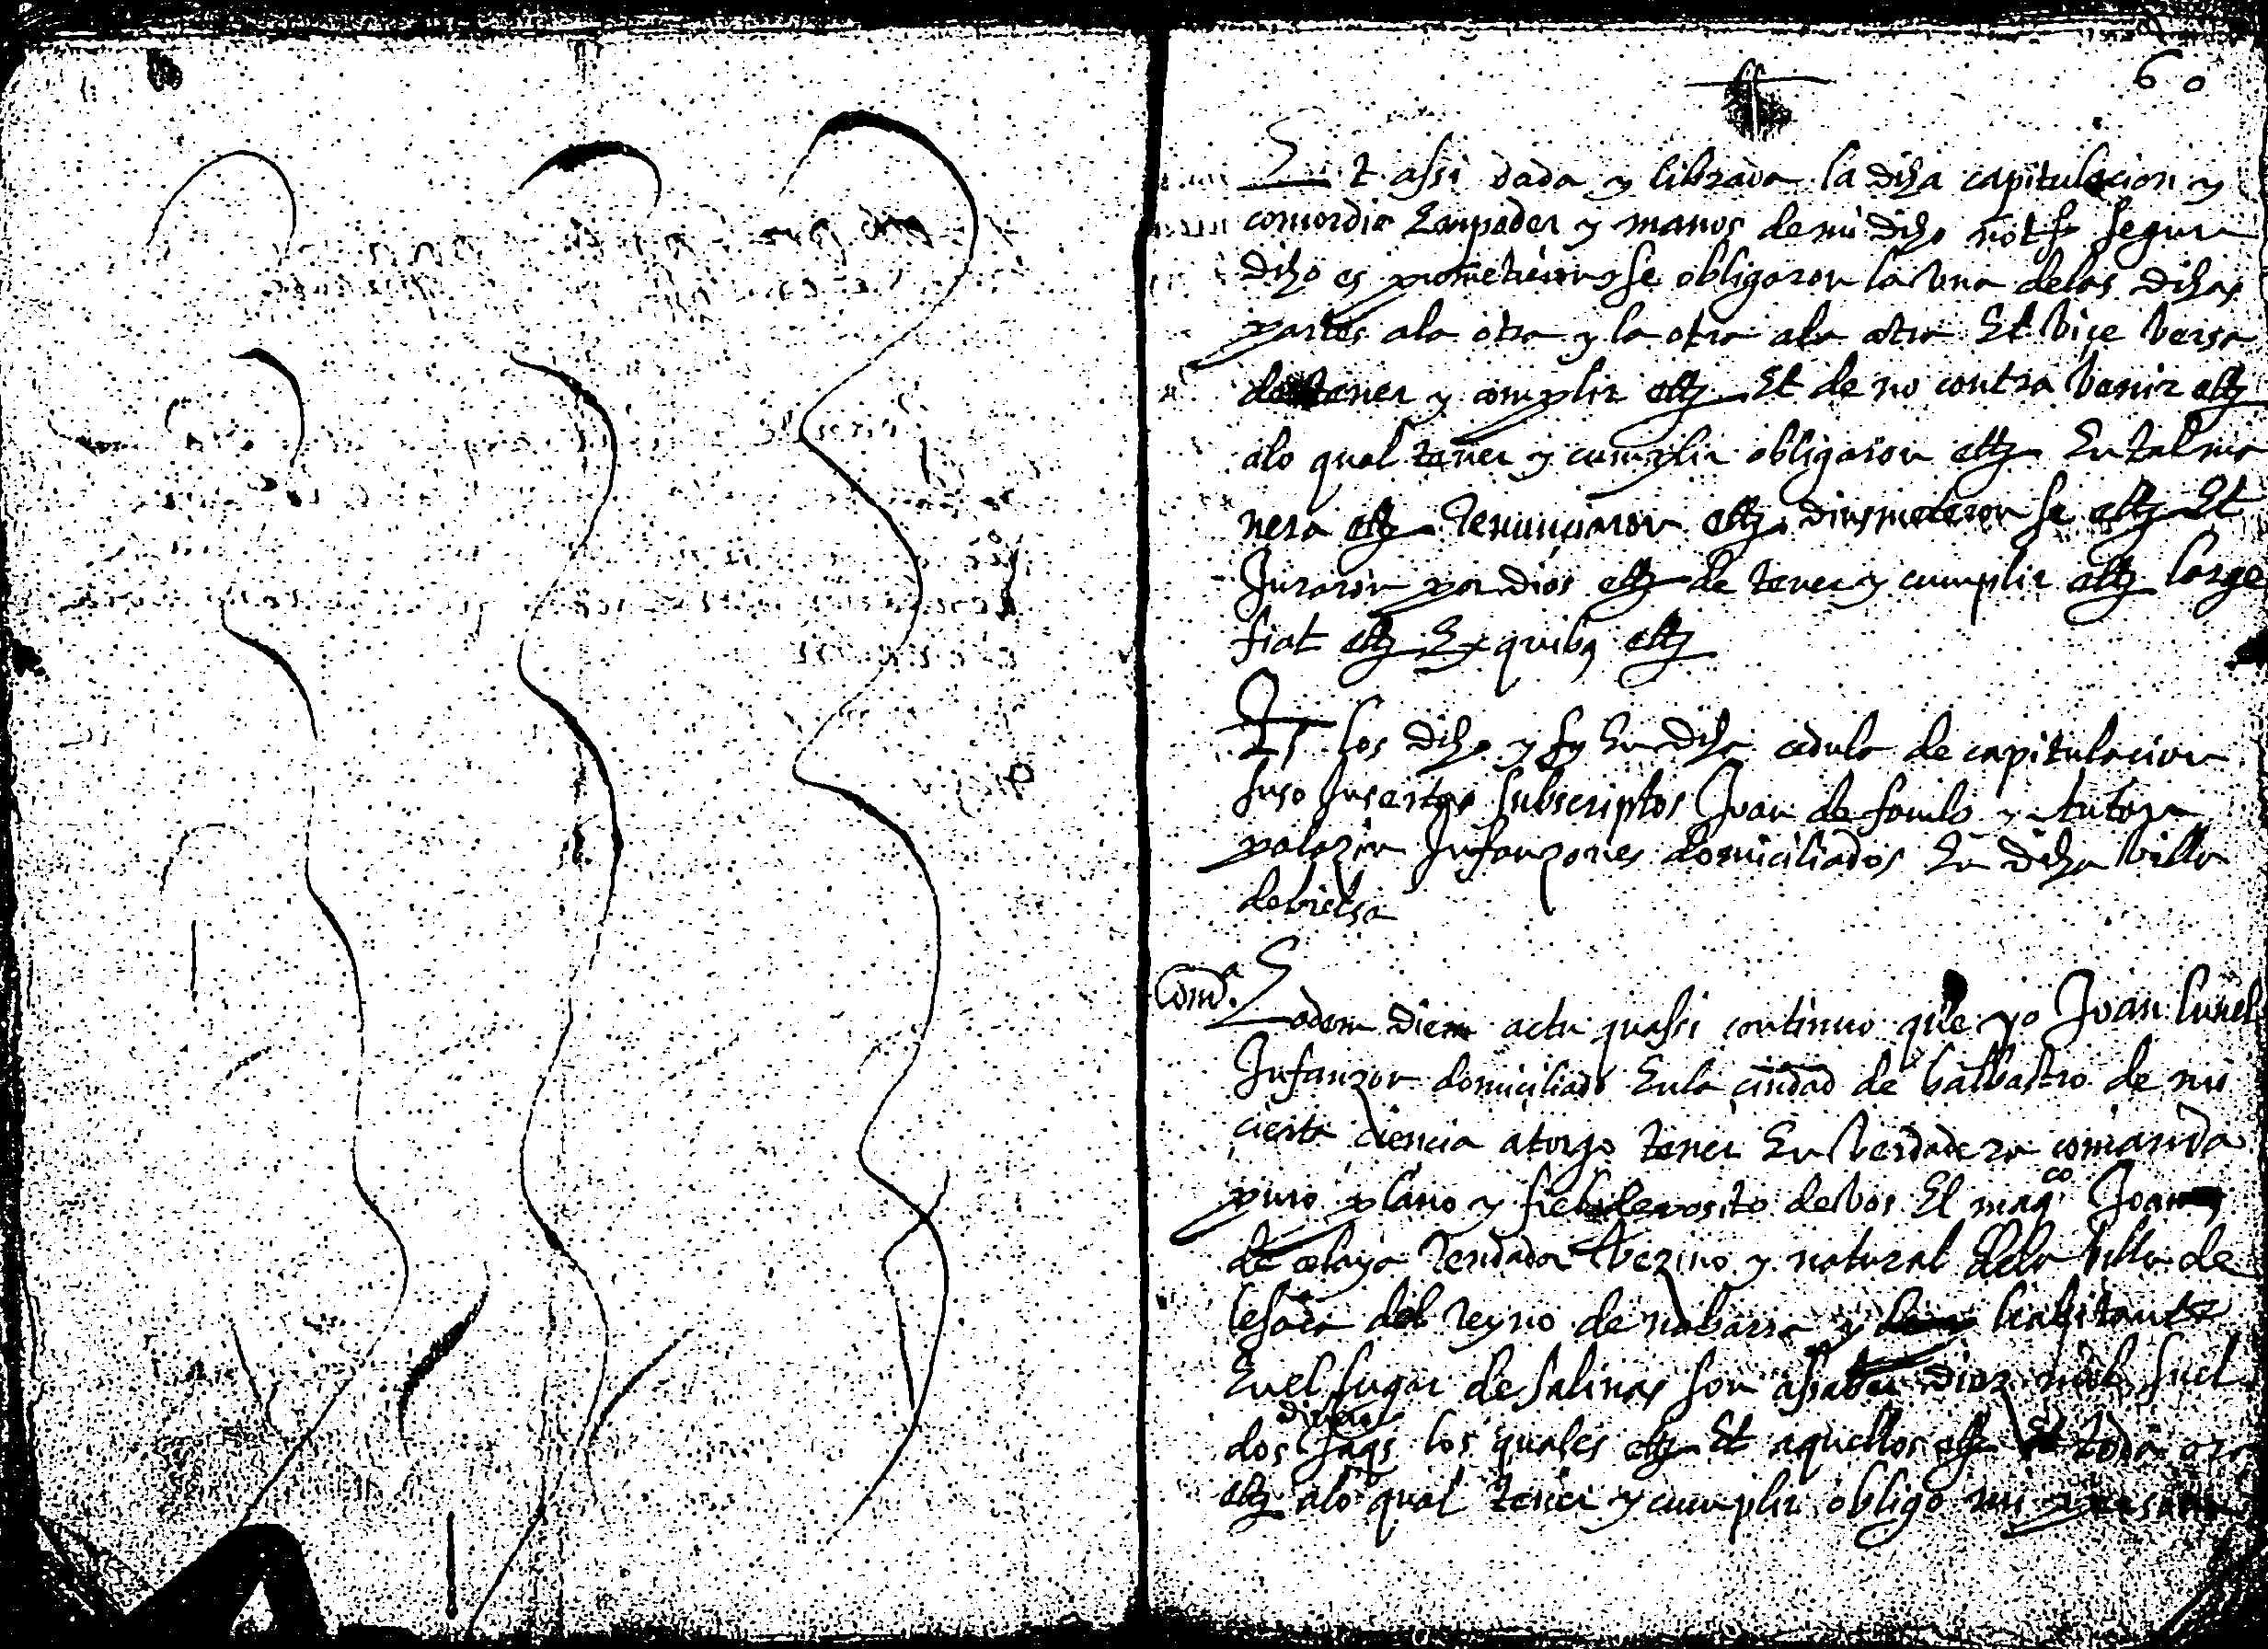 60
Et assi dada y librada la dicha capitulacion y
concordia en poder y manos de mi dicho notº segun
dicho es prometieron y se obligaron la una de las dichas
partes ala otra y la otra ala otra Et vice versa
de tener y complir ettz Et de no contra venir ettz
alo qual tener y cumplir obligaron ettz En tal ma
nera ettz Renunciaron ettz diusmetieron se ettz Et
Juraron por dios ettz de tener y cumplir ettz large
fiat ettz Ex quibus ettz
Ts los dichos y en dicha cedula de capitulacion
suso Insertos subscriptos Juan de fondo y Anton
palazin Infanzones domiciliados En dicha villa
de bielsa
Comda
Eodem die actu quassi continuo que yo Joan Cunel
Infanzon domiciliado En la ciudad de balbastro de mi
cierta ciencia atorgo tener En verdadera comanda
puro plano y fiel deposito de vos El magco Joan
de elaya Rendador vezino y natural dela villa de
lesaca del Reyno de nabarra y habitante
En el lugar de salinas son assaber diez mil suel
dos dineros Jaqs los quales ettz Et aquellos ettz Et toda ora
ettz alo qual tener y cumplir obligo mi persona